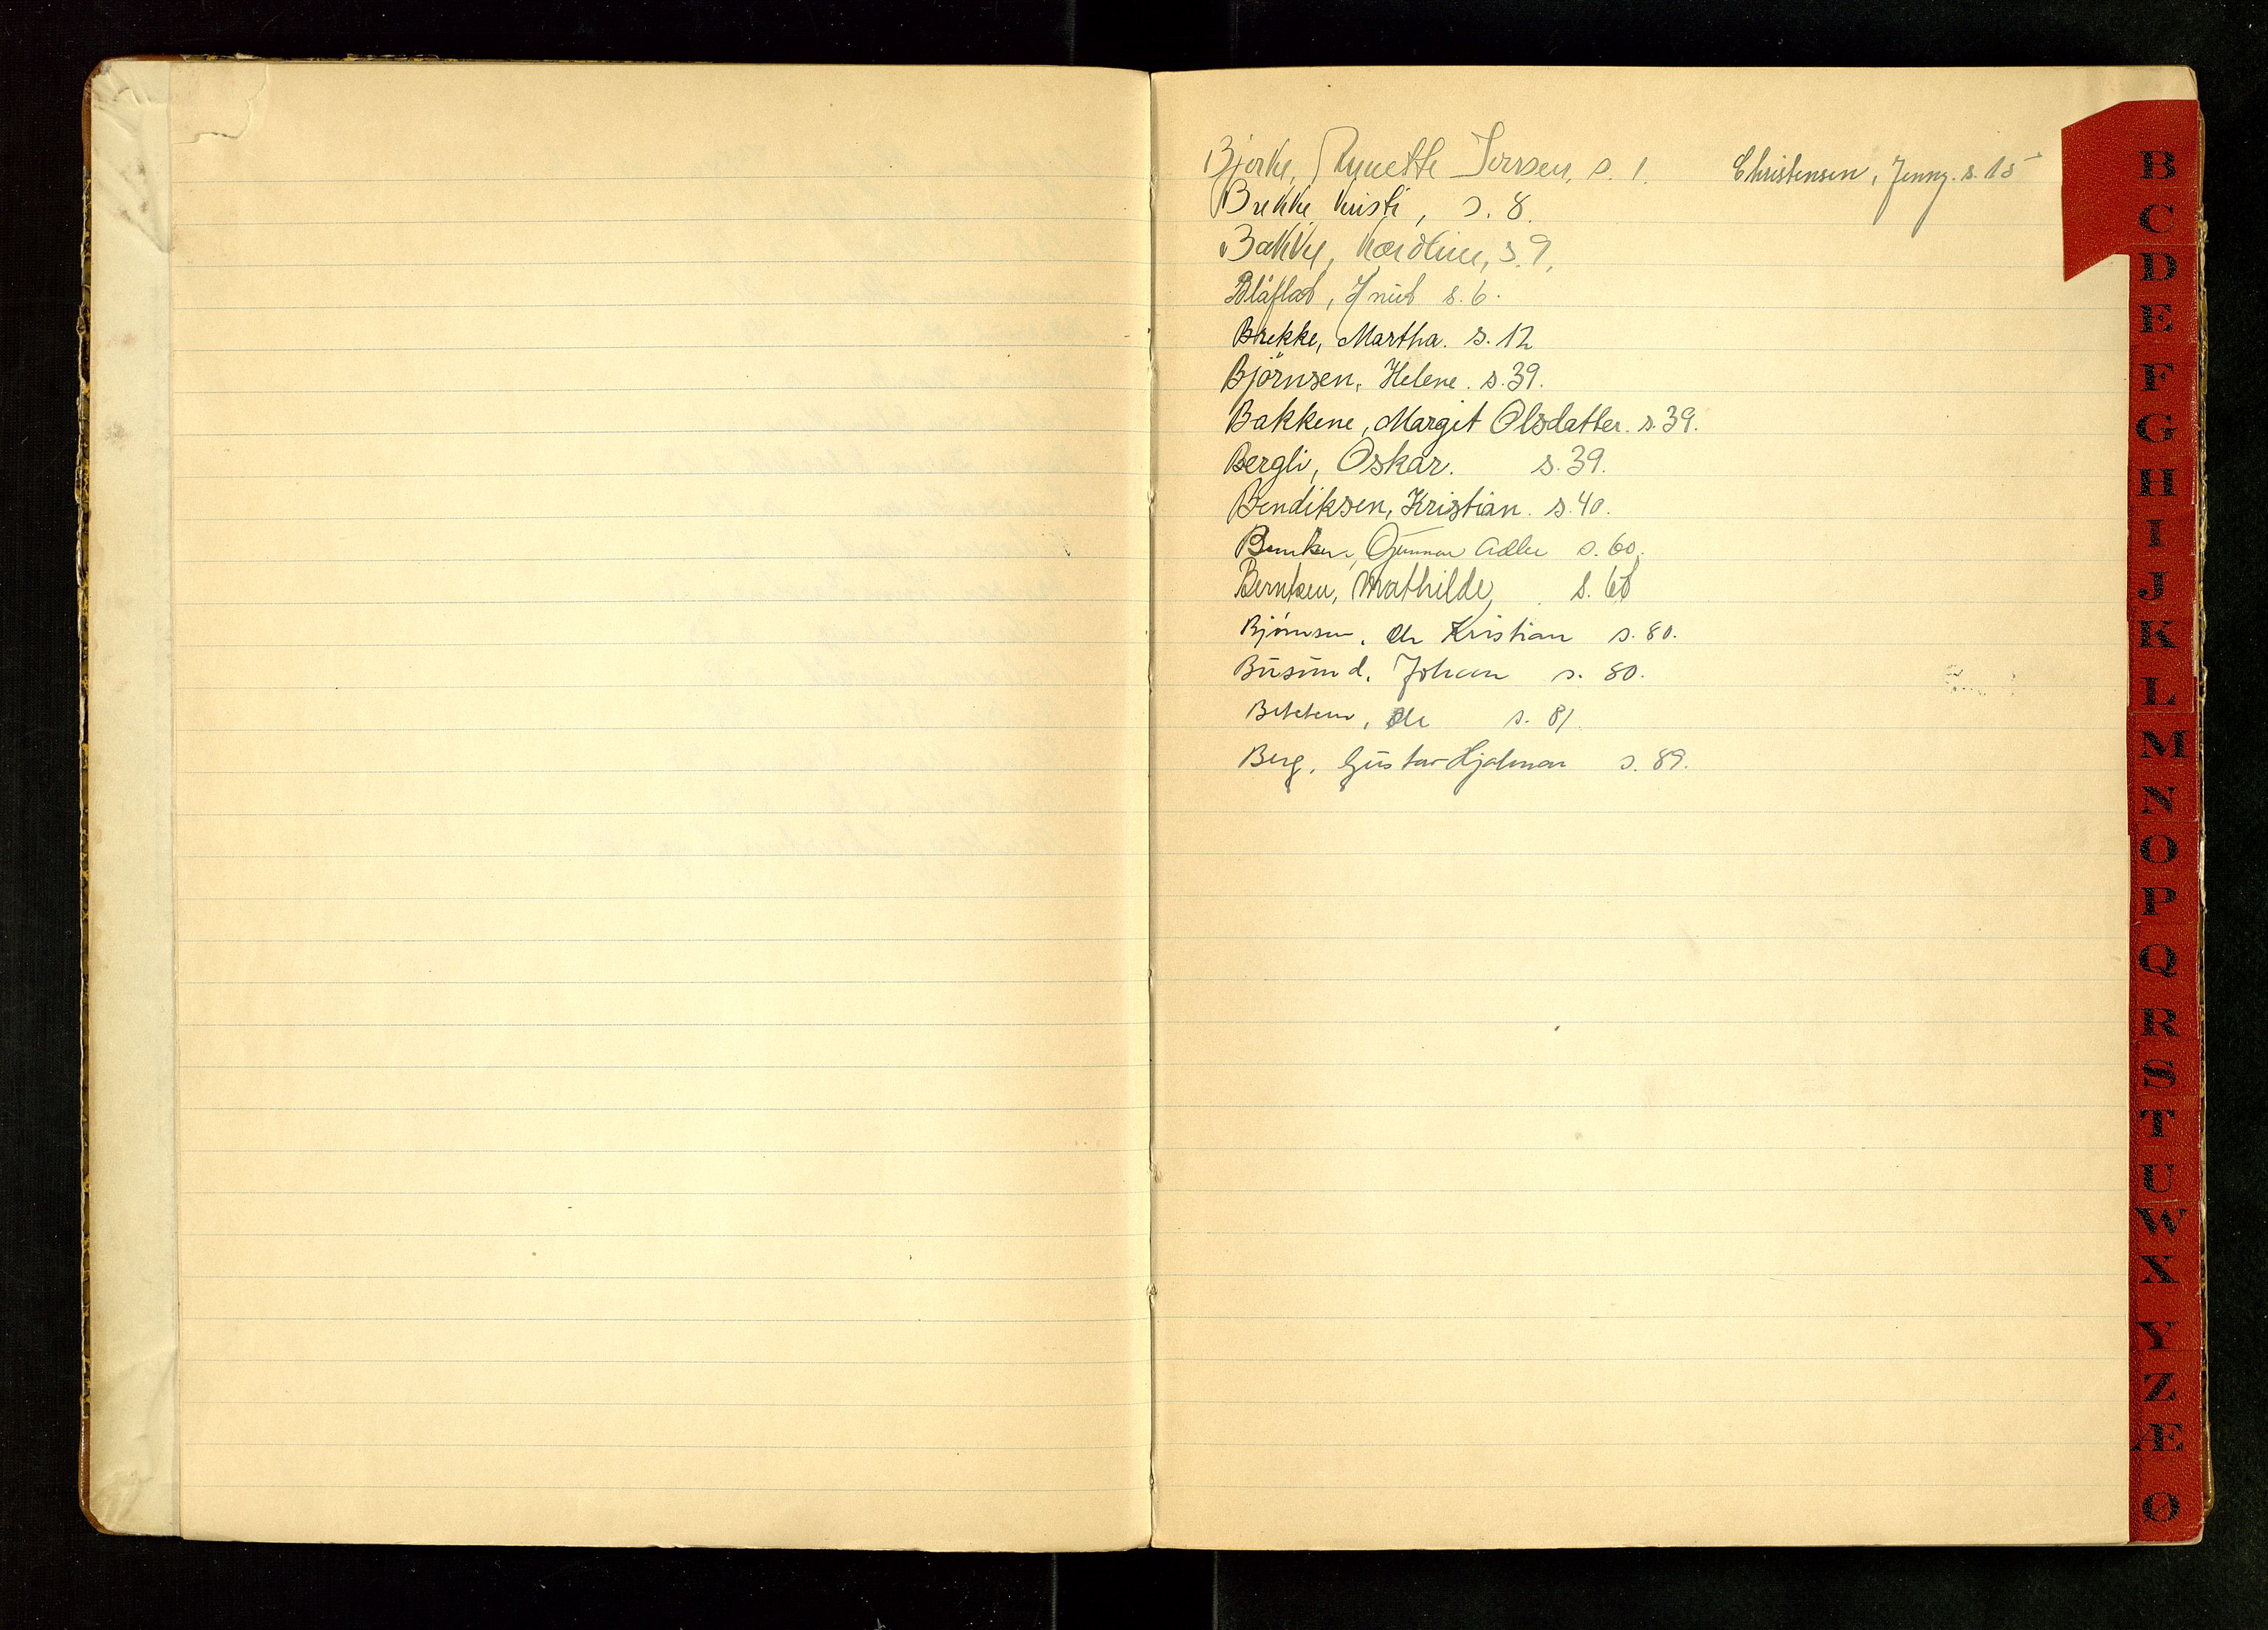 Bjerke, Lynette Iversen, s. 1.
Christensen, Jenny. s. 15
Brekke, Kristi, s. 8.
Bakke, Nordline, s. 9.
Blåflat, Knut s. 6.
Brekke, Martha. s. 12
Björnsen, Helene. s. 39.
Bakkene, Margit Olsdatter. s. 39.
Bergli, Oskar. s. 39.
Bendiksen, Kristian. s. 40.
Gunnar Adler s. 60.
Berntsen, Mathilde, s. 66
Bjørnsen, Ole Kristian s. 80.
Busund, Johan s. 80.
Ole s. 81.
Berg, Gustav Hjalmar s. 89.
B
C
D
E
F
G
H
I
J
K
L
M
N
O
P
Q
R
S
T
U
W
X
Y
Z
Æ
Ø